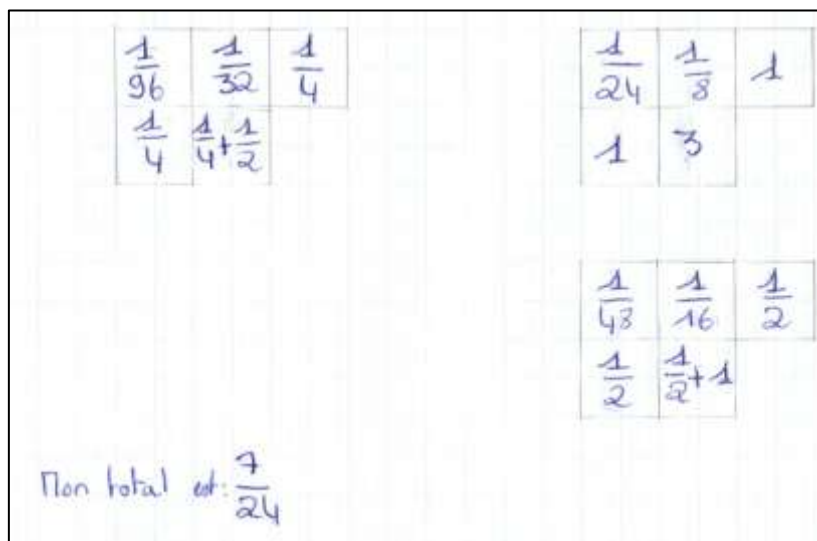 1/96 1/32 1/4
1/4 1/4+1/2
1/24 1/8 1
1 3
1/48 1/16 1/2
1/2 1/2+1
Mon total est: 7/24